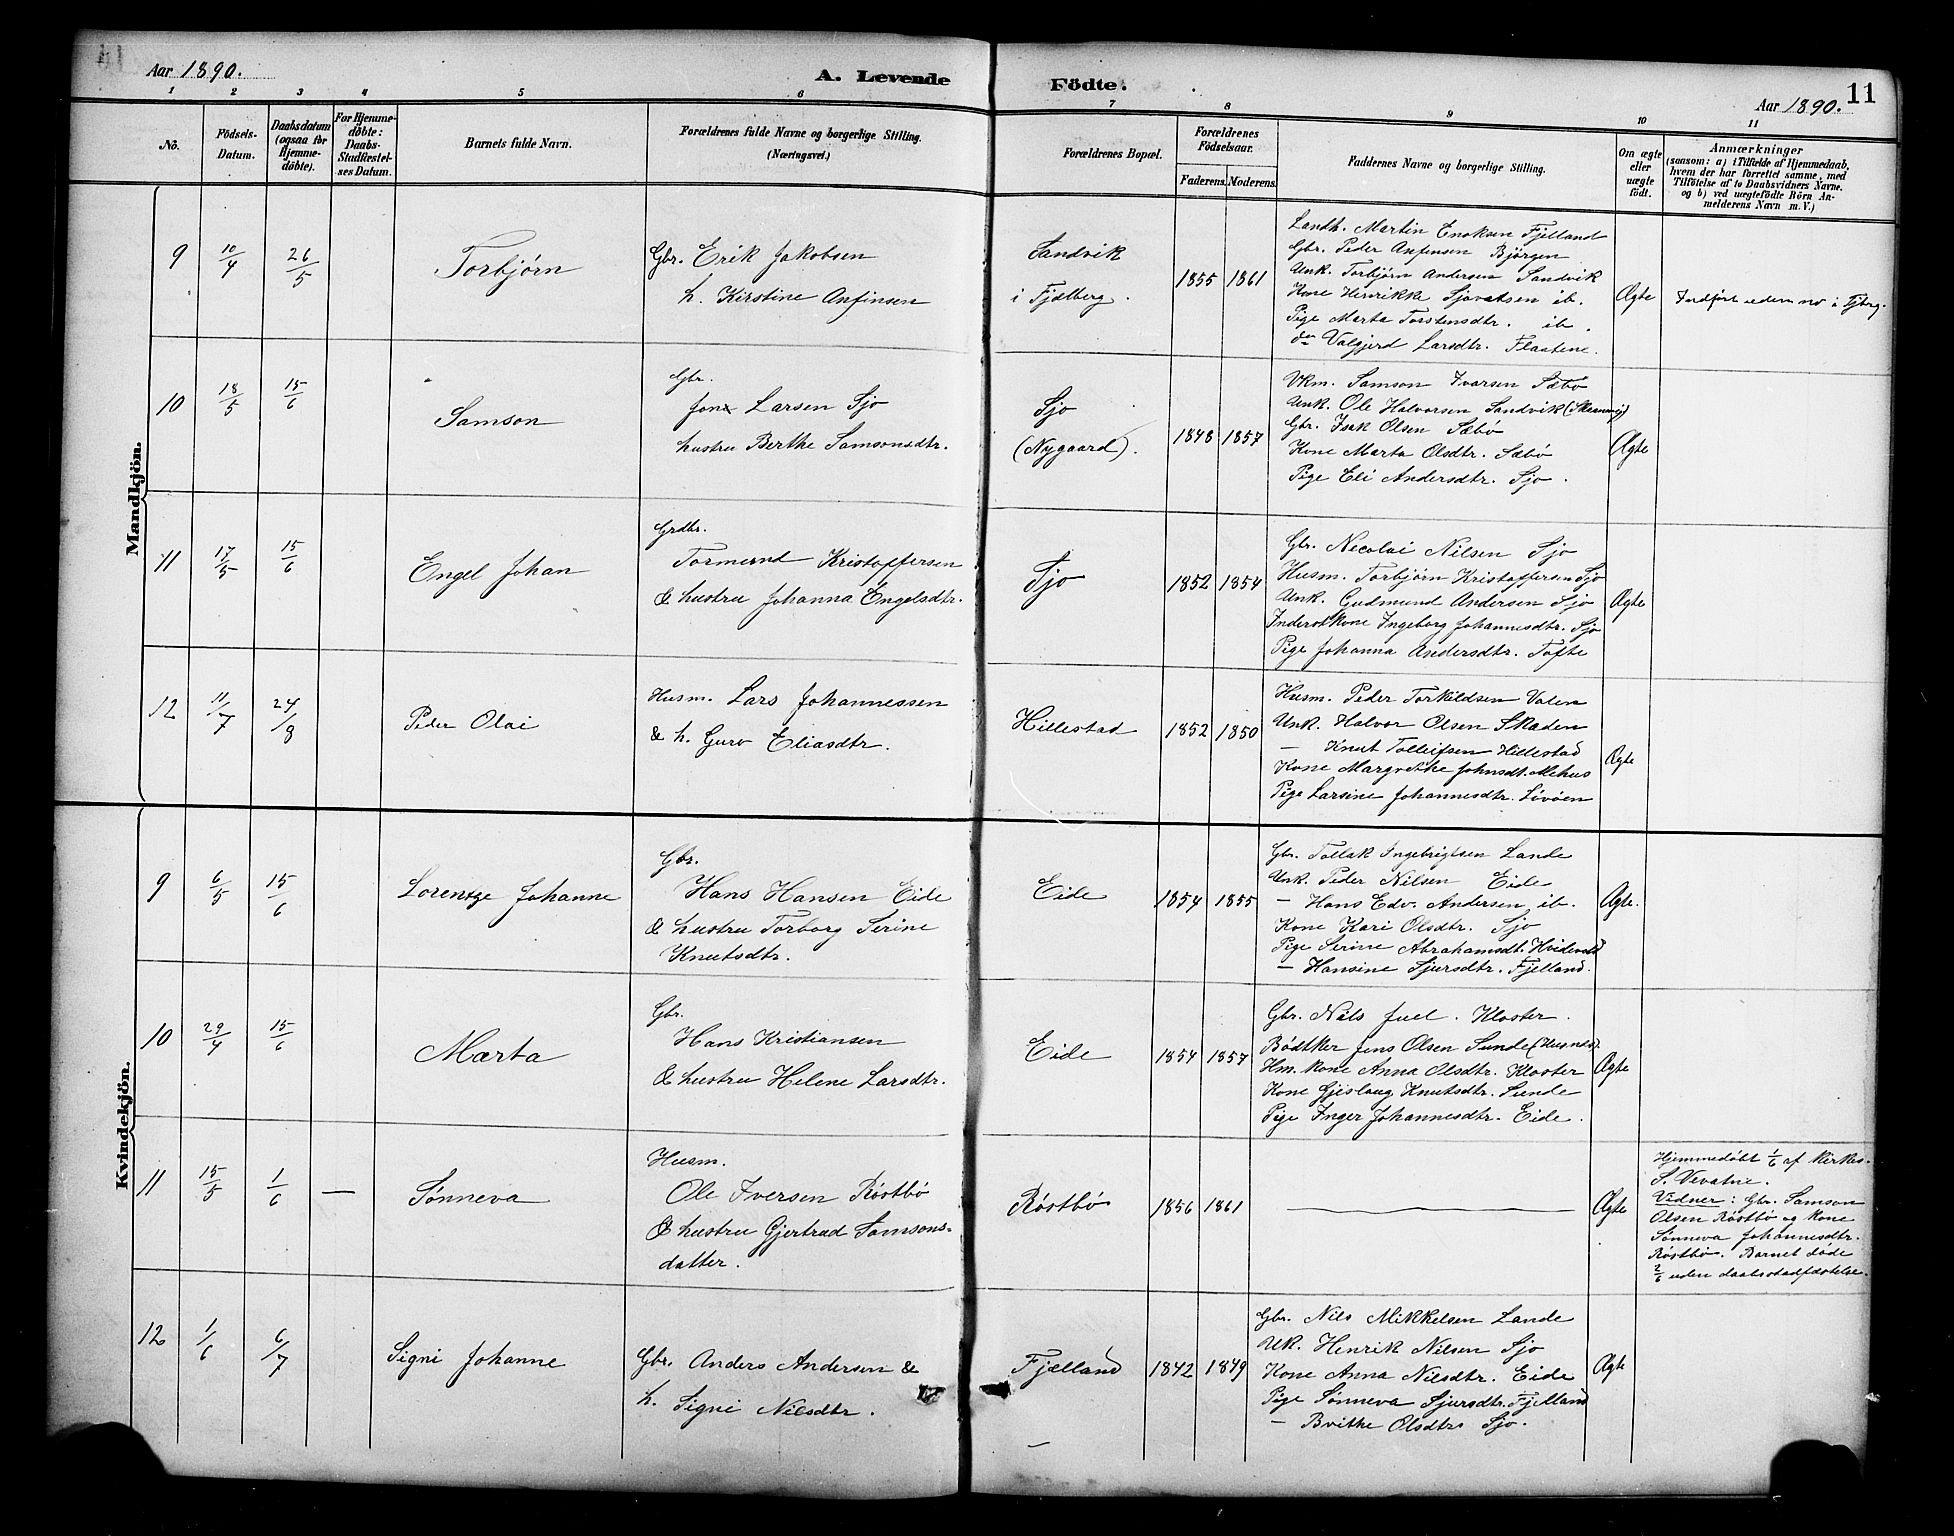 Aar 1890. A. Levende Födte. Aar 1890. 11
1 2 3 4 5 6 7 8 9 10 11
Nö.
Födsels-Datum.
Daabsdatum (ogsaa for Hjemmedöbte).
For Hjemmedöbte: Daabs-Stadfæstelses Datum.
Barnets fulde Navn.
Forældrenes fulde Navne og borgerlige Stilling.
(Næringsvei.)
Forældrenes Bopæl.
Forældrenes Födselsaar.
Faderens. Moderens.
Faddernes Navne og borgerlige Stilling.
Om ægte eller uægte födt.
Anmærkninger
(saasom: a) i Tilfælde af Hjemmedaab,
hvem der har forrettet samme, med
Tilföielse af to Daabsvidners Navne.
og b) ved uægtefödte Börn An-
melderens Navn m. V.)
Mandkjön.
9 10/4 26/5 Torbjørn
Gbr. Erik Jakobsen
h. Kirstine Anfinsen
Sandvik
i Fjælberg.
1855 1861
Landh. Martin Enoksen Fjelland
Gbr. Peder Anfinsen Bjørgen
Unk. Torbjørn Andersen Sandvik
Kone Henrikke Sjovatsen ib.
Pige Marta Torstensdtr. ib.
do Valgjerd Larsdtr. Flaatene.
Ægte
10 18/5 15/6 Samson
Gbr.
Jon Larsen Sjo
hustru Berthe Samsonsdtr.
Sjo
(Nygaard).
1848 1857
Ukm. Samson Ivarsen Sæbø
Unk. Ole Halvorsen Sandvik
Gbr. Isak Olsen Sæbø
Kone Marta Olsdtr. Sæbø
Pige Eli Andersdtr. Sjo.
Ægte
11 17/5 15/6 Engel Johan
Grdbr.
Tormund Kristoffersen
& hustru Johanna Engelsdtr.
Sjo
1852 1854
Gbr. Necolai Nilsen Sjo
Husm. Torbjørn Kristoffersen Sjo
Unk. Gudmund Andersen Sjo
Inderstkone Ingeborg Johannesdtr. Sjo
Pige Johanna Andersdtr. Tofte
Ægte
12 11/7 24/8 Peder Olai
Husm. Lars Johannessen
& h. Guro Eliasdtr.
Hillestad
1852 1850
Husm. Peder Torkildsen Valen
Unk. Halvor Olsen Skaden
— Knut Tolleifsen Hillestad
Kone Margrethe Johnsdt. Mehus
Pige Larsine Johannesdtr. Løvøen
Ægte
Kvindekjön.
9 6/5 15/6 Lorentze Johanne
Gbr.
Hans Hansen Eide
& hustru Torborg Serine
Knutsdtr.
Eide
1854 1855
Gbr. Tollak Ingebrigtsen Lande
Unk. Peder Nilsen Eide
— Hans Edv. Andersen ib.
Kone Kari Olsdtr. Sjo
Pige Serine Abrahamsdt.
— Hansine Sjursdtr. Fjelland.
Ægte.
10 29/4 15/6 Marta
Gbr.
Hans Kristiansen
& hustru Helene Larsdtr.
Eide
1854 1857
Gbr. Nils Juel. Kloster.
Bødtker Jens Olsen Sunde (Husnes).
Hm. kone Anna Olsdtr. Kloster
Kone Gjeslaug Knutsdtr. Sunde
Pige Inger Johannesdtr. Eide.
Ægte
11 15/5 1/6 — Sønneva
Husm.
Ole Iversen Røstbø
& hustru Gjertrud Samsons-
datter.
Røstbø
1856 1861
Ægte
Hjemmedøbt 1/6 af Kirkes.
S. Vevatne.
Vidner: Gbr. Samson
Olsen Røstbø og kone
Sønneva Johannesdtr.
Røstbø. Barnet døde
2/6 uden daabsstadfæstelse.
12 1/6 6/7 Signi Johanne
Gbr. Anders Andersen &
h. Signi Nilsdtr.
Fjælland
1842 1849
Gbr. Nils Mikkelsen Lande
UK. Henrik Nilsen Sjo
Kone Anna Nilsdtr. Eide
Pige Sønneva Sjursdtr. Fjelland
— Brithe Olsdtr Sjo.
Ægte